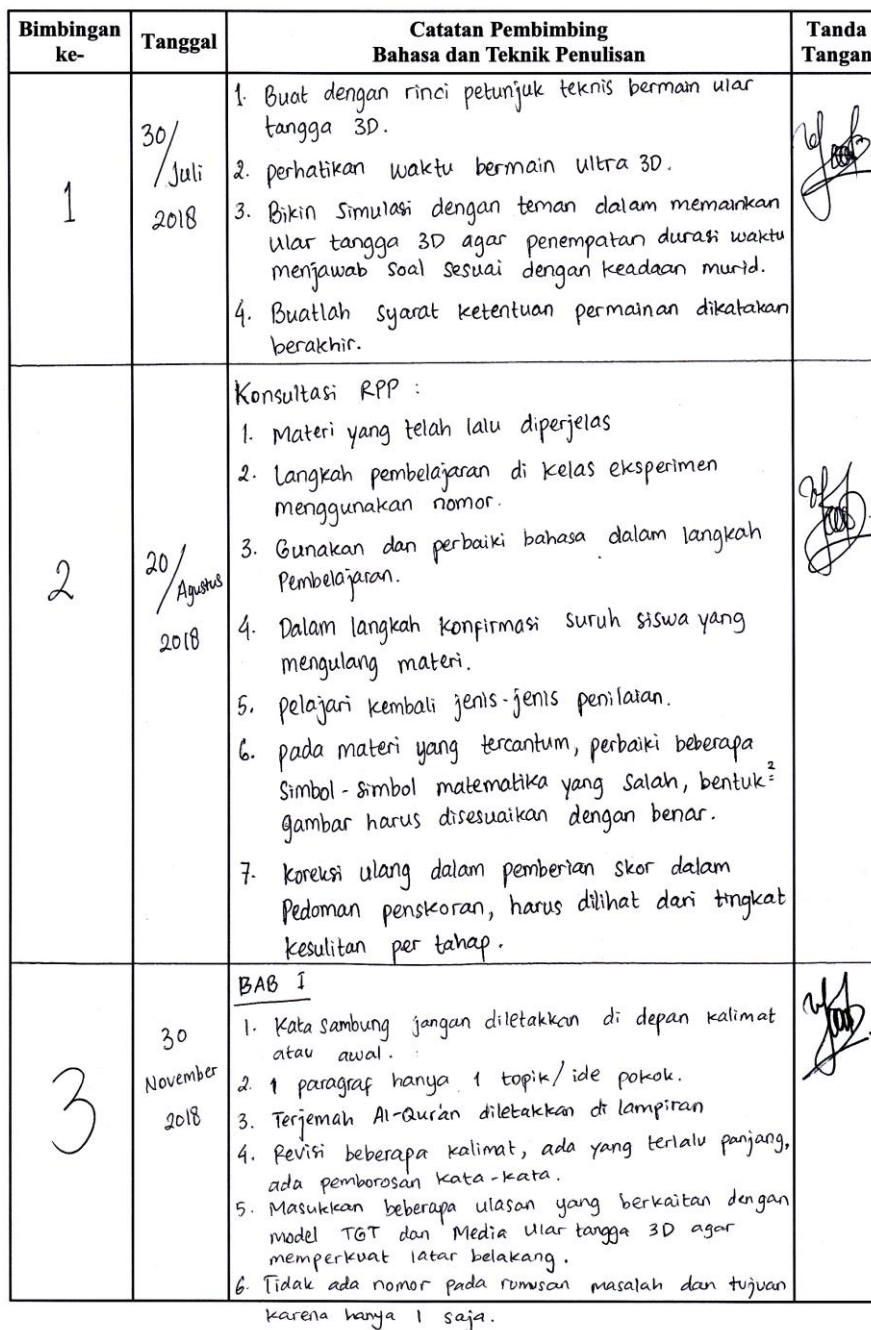 Bimbingan ke-
Tanggal
Catatan Pembimbing
Bahasa dan Teknik Penulisan
Tanda Tangan
1
30/
Juli
2018
1. Buat dengan rinci petunjuk teknis bermain ular
tangga 3D.
2. perhatikan waktu bermain ultra 3D.
3. Bikin Simulasi dengan teman dalam memainkan
Ular tangga 3D agar penempatan durasi waktu
menjawab soal sesuai dengan keadaan murid.
4. Buatlah syarat ketentuan permainan dikatakan
berakhir.
2
20/
Agustus
2018
Konsultasi RPP :
1. Materi yang telah lalu diperjelas
2. Langkah pembelajaran di kelas eksperimen
menggunakan nomor.
3. Gunakan dan perbaiki bahasa dalam langkah
Pembelajaran.
4. Dalam langkah konfirmasi suruh siswa yang
mengulang materi.
5. pelajari kembali jenis-jenis penilaian.
6. pada materi yang tercantum, perbaiki beberapa
Simbol-simbol matematika yang salah, bentuk²
gambar harus disesuaikan dengan benar.
7. koreksi ulang dalam pemberian skor dalam
Pedoman penskoran, harus dilihat dari tingkat
kesulitan per tahap.
3
30
November
2018
BAB I
1. Kata sambung jangan diletakkan di depan kalimat
atau awal.
2. 1 paragraf hanya 1 topik/ide pokok.
3. Terjemah Al-Qur'an diletakkan di lampiran
4. Revisi beberapa kalimat, ada yang terlalu panjang,
ada pemborosan kata-kata.
5. Masukkan beberapa ulasan yang berkaitan dengan
model TGT dan Media Ular tangga 3D agar
memperkuat latar belakang.
6. Tidak ada nomor pada rumusan masalah dan tujuan
karena hanya 1 saja.